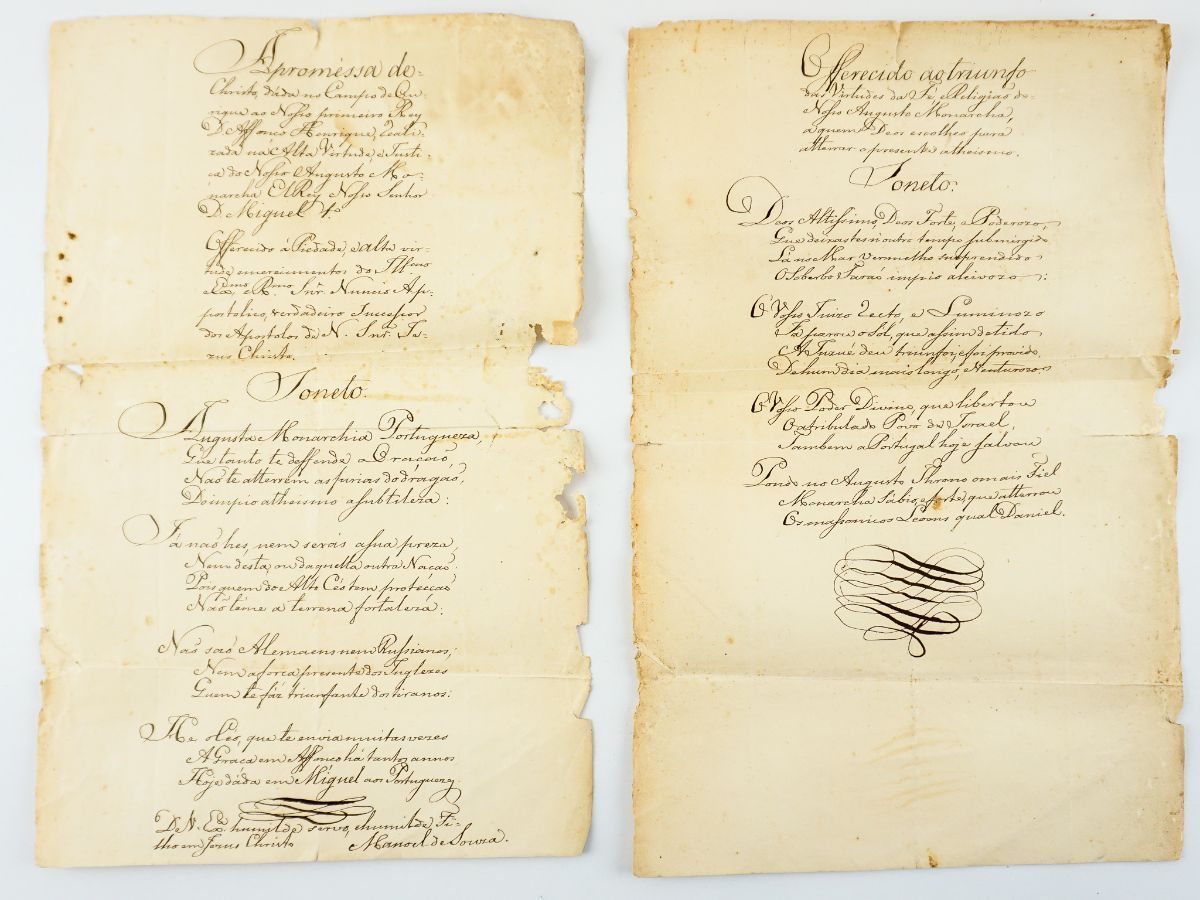 A promessa de
Christo, dada no Campo de Ou-
rique ao Nosso primeiro Rey
D. Affonco Henrique, reali-
zada na Alta Virtude, e Justi-
ca do Nosso Augusto Mo-
narcha ElRey Nosso Senhor
D. Miguel 1.º
Offerecido á Piedade, e alta vir-
tude e merecimentos do Illmo
Exmo e Rmo Snr. Nuncio Ap-
postolico, verdadeiro Sucessor
dos Apostolos de N. Snr. Je-
zus Christo.
Soneto.
Augusta Monarchia Portugueza,
Que tanto te deffende a Oraçaõ,
Naõ te atterrem as furias do dragaõ,
Do impio atheismo a subtileza:
Já naõ hes, nem serás a sua preza,
Nem desta, ou daquella outra Naçaõ
Pois quem do Alto Céo tem protécçaõ
Naõ téme a terrena fortaleza:
Naõ saõ Alemaens nem Russianos,
Nem a força presente dos Inglezes
Quem te fáz triunfante dos tiranos:
He o Céo, que te envia muitas vezes
A Graça em Affonco há tantos annos
Hoje dáda em Miguel aos Portuguezes.
D. V. Ex. humilde servo, e humilde Fi-
lho em Jezus Christo Manoel de Souza.
Offerecido ao triunfo
das Virtudes da Fé, e Religiaõ do
Nosso Augusto Monarcha,
a quem Deos escolheo para
atterrar o presente atheismo.
Soneto.
Deos Altissimo, Deos Forte, e Poderozo,
Que deixastes n'outro tempo submirgido
Lá no Mar vermelho surprendido
O Soberbo Faraó impio aleivozo:
O Vosso Juizo recto, e Luminozo
Fá parou o Sól, que assim detido
A Juzué deu triunfo, e foi provido
De hum dia mais longo, e Venturozo.
O Vosso Poder Divino, que libertou
O atribulado Povo de Israel,
Tambem a Portugal hoje salvou
Pondo no Augusto Throno o mais Fiel
Monarcha Sábio, e forte, que atterrou
Os massonicos Leoens qual Daniel.